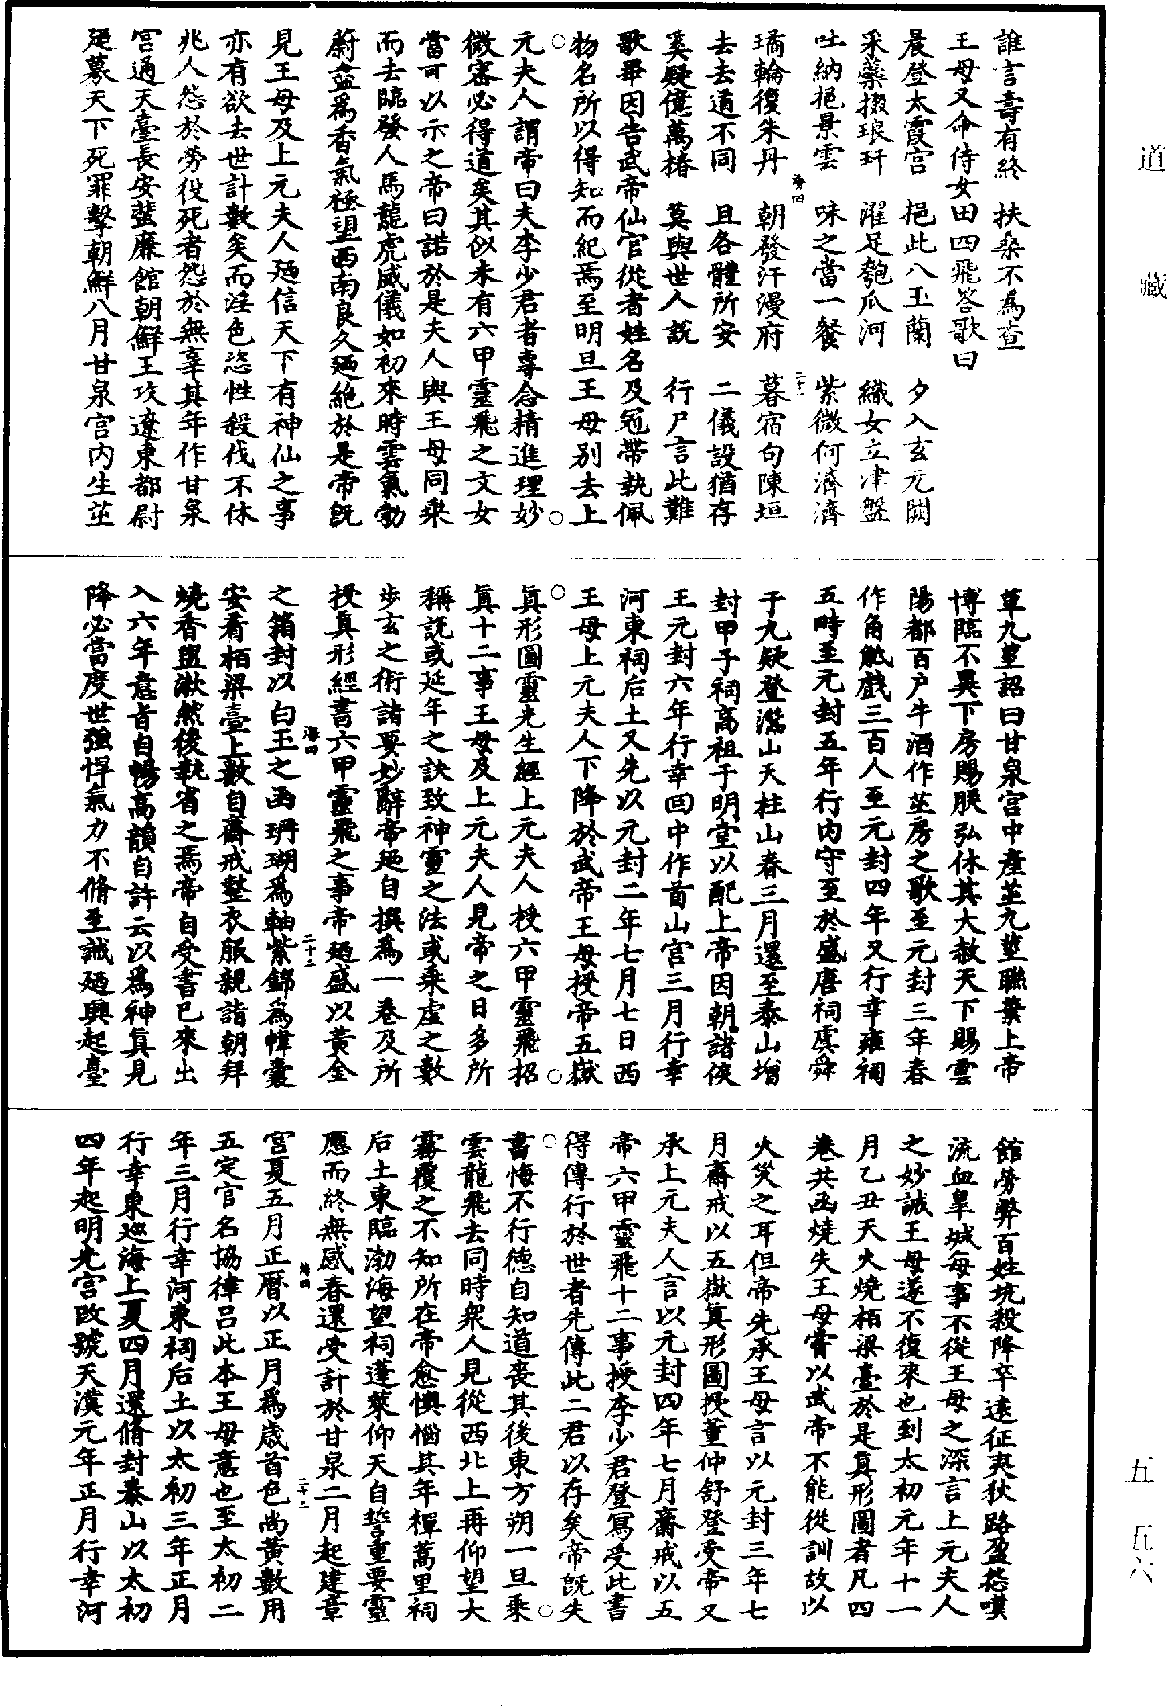 誰言壽有終　扶桑不爲查
王母又命侍女田四飛答歌曰
晨登太霞宮　挹此八玉蘭　夕入玄元闕
采藥掇琅玕　濯足匏瓜河　織女立津盤
吐納挹景雲　味之當一餐　紫微何濟濟
璚輪復朱丹　朝發汗漫府　暮宿句陳垣
去去道不同　且各體所安　二儀設猶存
奚疑億萬椿　莫與世人說　行尸言此難
歌畢因告武帝仙官從者姓名及冠帶執佩
物名所以得知而紀焉至明旦王母別去上
元夫人謂帝曰夫李少君者專念精進理妙
微審必得道矣其似未有六甲靈飛之文女
當可以示之帝曰諾於是夫人與王母同乘
而去臨發人馬龍虎威儀如初來時雲氣勃
蔚盡爲香氣極望西南良久廼絕於是帝旣
見王母及上元夫人廼信天下有神仙之事
亦有欲去世計數矣而淫色恣性殺伐不休
兆人怨於勞役死者怨於無辜其年作甘泉
宮通天臺長安蜚廉館朝鮮王攻遼東都尉
廼募天下死罪擊朝鮮八月甘泉宮內生芝
草九莖詔曰甘泉宮中產芝九莖聯葉上帝
博臨不異下房賜朕弘休其大赦天下賜雲
陽都百户牛酒作芝房之歌至元封三年春
作角觝戲三百人至元封四年又行幸雍祠
五畤至元封五年行內守至於盛唐祠虞舜
于九疑登灊山天柱山春三月還至泰山增
封甲子祠高祖于明堂以配上帝因朝諸侯
王元封六年行幸回中作首山宮三月行幸
河東祠后土又先以元封二年七月七日西
王母上元夫人下降於武帝王母授帝五嶽
眞形圖靈光生經上元夫人授六甲靈飛招
眞十二事王母及上元夫人見帝之日多所
稱說或延年之訣致神靈之法或乘虛之數
步玄之術諸要妙辭帝廼自撰爲一卷及所
授眞形經書六甲靈飛之事帝廼盛以黃金
之箱封以白玉之函珊瑚爲軸紫錦爲幃囊
安着栢梁臺上數自齋戒整衣服親詣朝拜
燒香盥漱然後執省之焉帝自受書已來出
入六年意旨自暢高韻自許云以爲神眞見
降必當度世強悍氣力不脩至誠廼興起臺
館勞弊百姓坑殺降卒遠征夷狄路盈怨嘆
流血皐城每事不從王母之深言上元夫人
之妙誡王母遂不復來也到太初元年十一
月乙丑天火燒栢梁臺於是眞形圖者凡四
卷共函燒失王母嘗以武帝不能從訓故以
火災之耳但帝先承王母言以元封三年七
月齋戒以五嶽眞形圖授董仲舒登受帝又
承上元夫人言以元封四年七月齋戒以五
帝六甲靈飛十二事授李少君登寫受此書
得傳行於世者先傳此二君以存矣帝旣失
書悔不行德自知道喪其後東方朔一旦乘
雲龍飛去同時衆人見從西北上再仰望大
霧覆之不知所在帝愈懊惱其年禪蒿里祠
后土東臨渤海望祠蓬萊仰天自誓重要靈
應而終無感春還受計於甘泉二月起建章
宮夏五月正曆以正月爲歲首色尚黃數用
五定官名協律呂此本王母意也至太初二
年三月行幸河東祠后土以太初三年正月
行幸東巡海上夏四月還脩封泰山以太初
四年起明光宮改號天漢元年正月行幸河
海四
二十一
海四
二十二
海四
二十三
道藏
五　五六